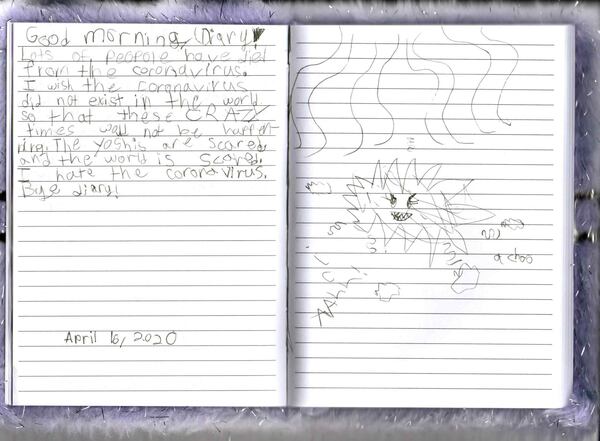 Good morning, Diary!
Lots of peopore have died
from the coronavirus.
I wish the coronavirus
did not exist in the world
so that these CRAZY
times wod not be happen
ring. The yoshis are scared
and the world is scared.
I hate the coronavirus.
Bye diary!
April 16, 2020
a choo